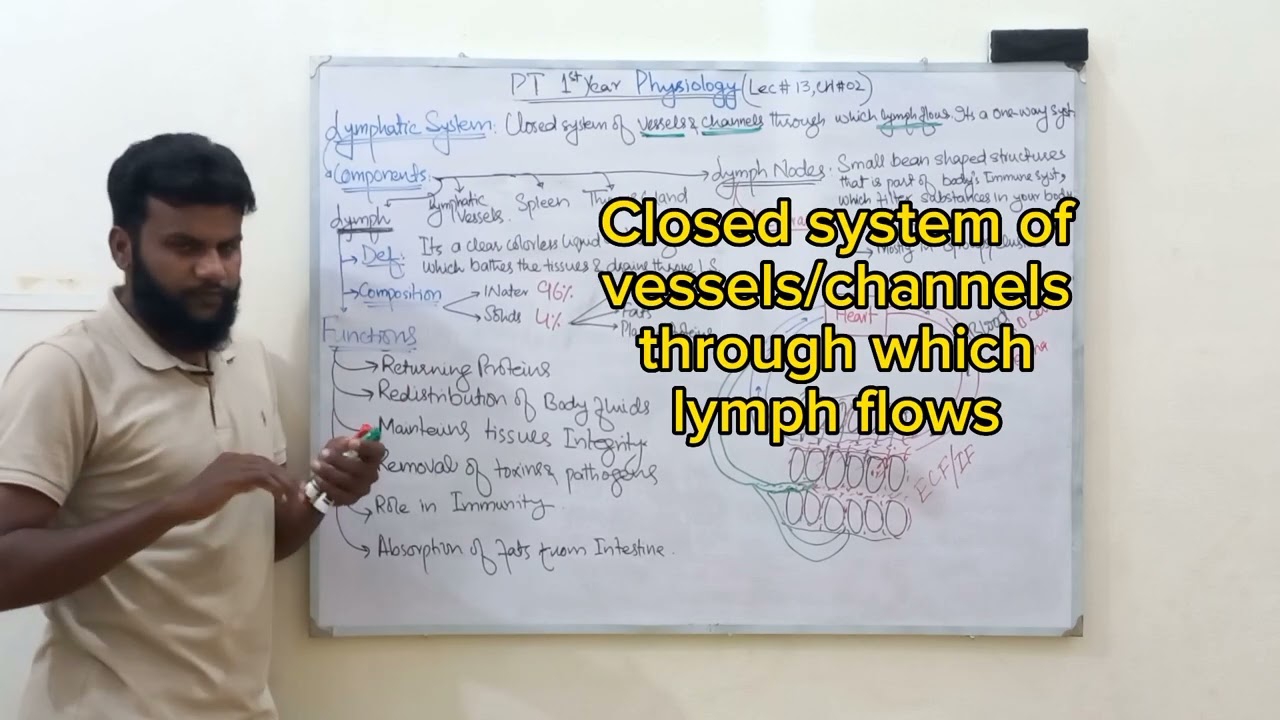 PT 1st Year Physiology (Lec# 13, CH#02)
Lymphatic System: Closed system of vessels & channels through which lymph flows. Its a one-way syst
Components:
Lymph
Lymphatic Vessels.
Spleen
Lymph Nodes. Small bean shaped structures
that is part of body's Immune syst,
which filter substances in your body
Def: Its a clear colorless liquid
which bathes the tissues & drains
Composition
Water 96%
Solids 4%
Functions
Returning Proteins
Redistribution of Body fluids
Mainteins tissues Integrity
Removal of toxins & pathogens
Role in Immunity
Absorption of Fats from Intestine.
Heart
Blood
ECF/IF
Closed system of
vessels/channels
through which
lymph flows